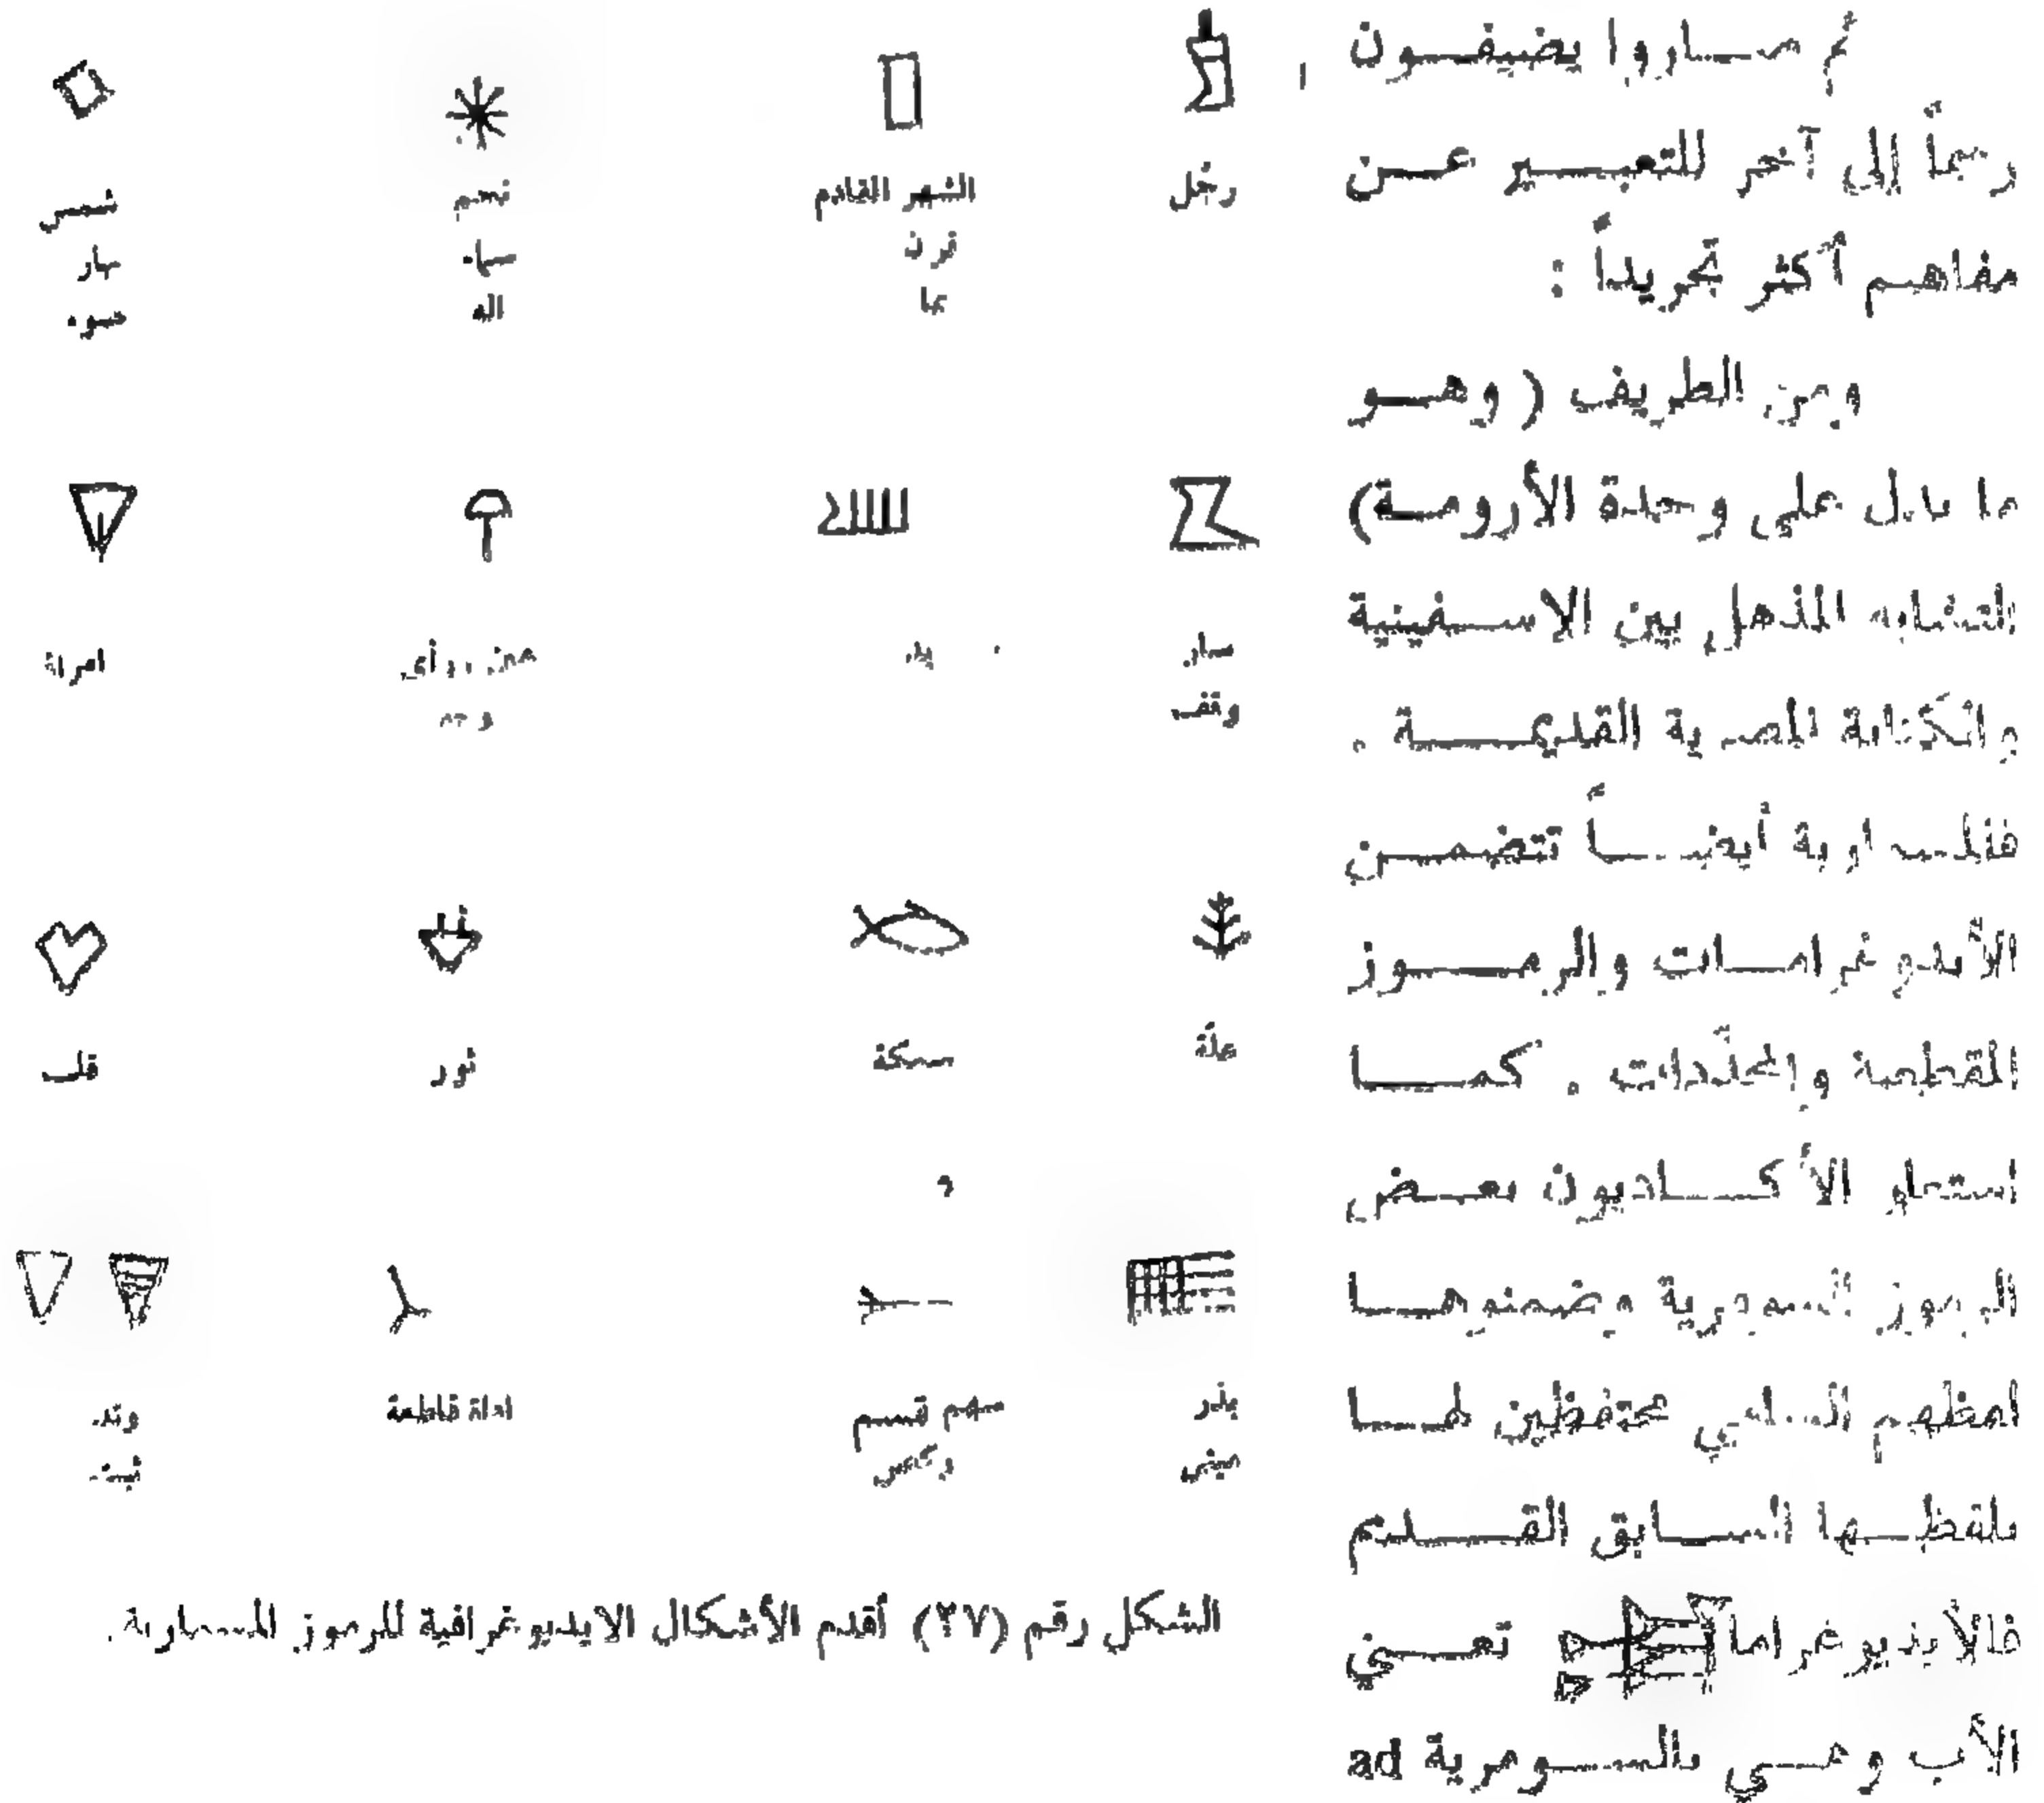 ثم صاروا يضيفون
رسماً إلى آخر للتعبير عن
مفاهيم أكثر تجريداً :
ومن الطريف ( وهو
ما يدل على وحدة الأرومة)
التشابه المذهل بين الاسفينية
والكتابة المصرية القديمة .
فالمسمارية أيضاً تتضمن
الأيديوغرامات والرموز
المقطعية والمحدّدات . كما
استعار الأكاديون بعض
الرموز السومرية وضمنوها
لفظهم السامي محتفظين لها
بلفظها السابق القديم
فالأيديوغراما تعني
الأب وهي بالسومرية ad
رجل
الشهر القادم
قرن
نجم
سماء
اله
شمس
نهار
ضوء
سار
وقف
يد
عين رأى
وجه
امرأة
غلّة
سمكة
ثور
قلب
بذر
مبنى
سهم قسم
اداة قاطعة
وتد
ثبت
الشكل رقم (٢٧) أقدم الأشكال الايديوغرافية للرموز المسمارية.